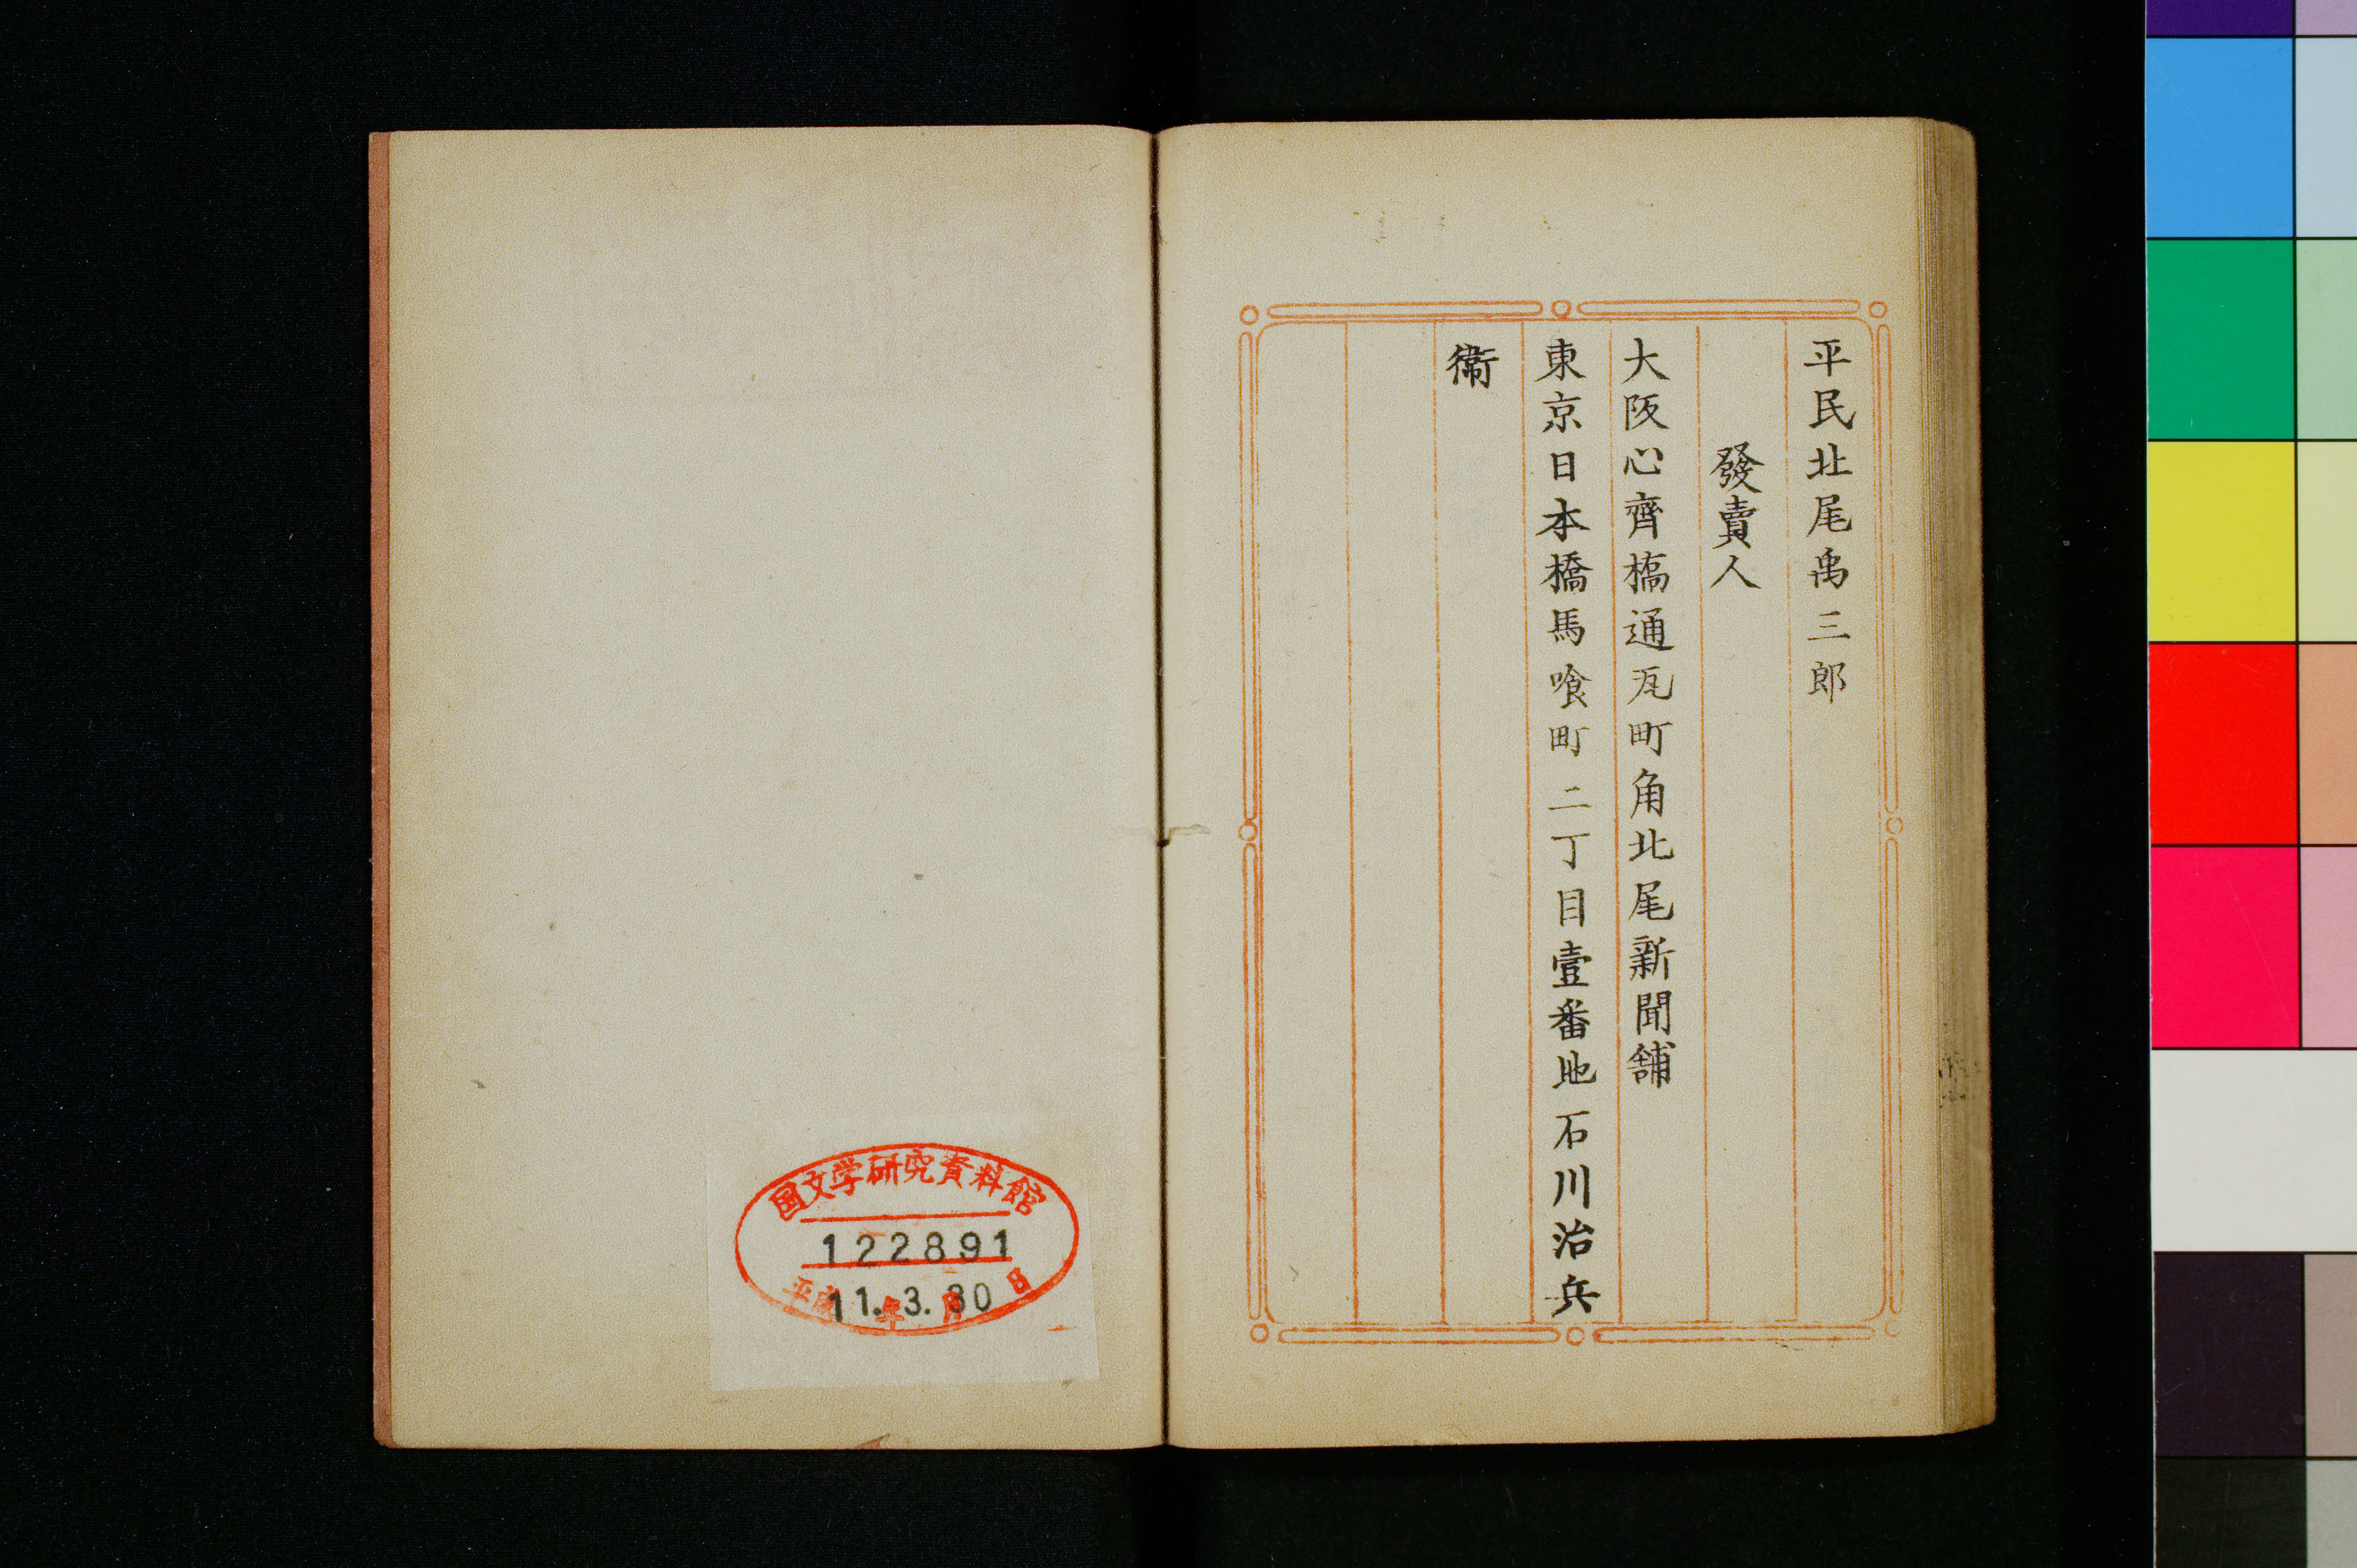 平民北尾禹三郎
發賣人
大阪心齊橋通瓦町角北尾新聞舖
東京日本橋馬喰町二丁目壹番地石川治兵
衞
国文学研究資料館
122891
平成11年3月30日